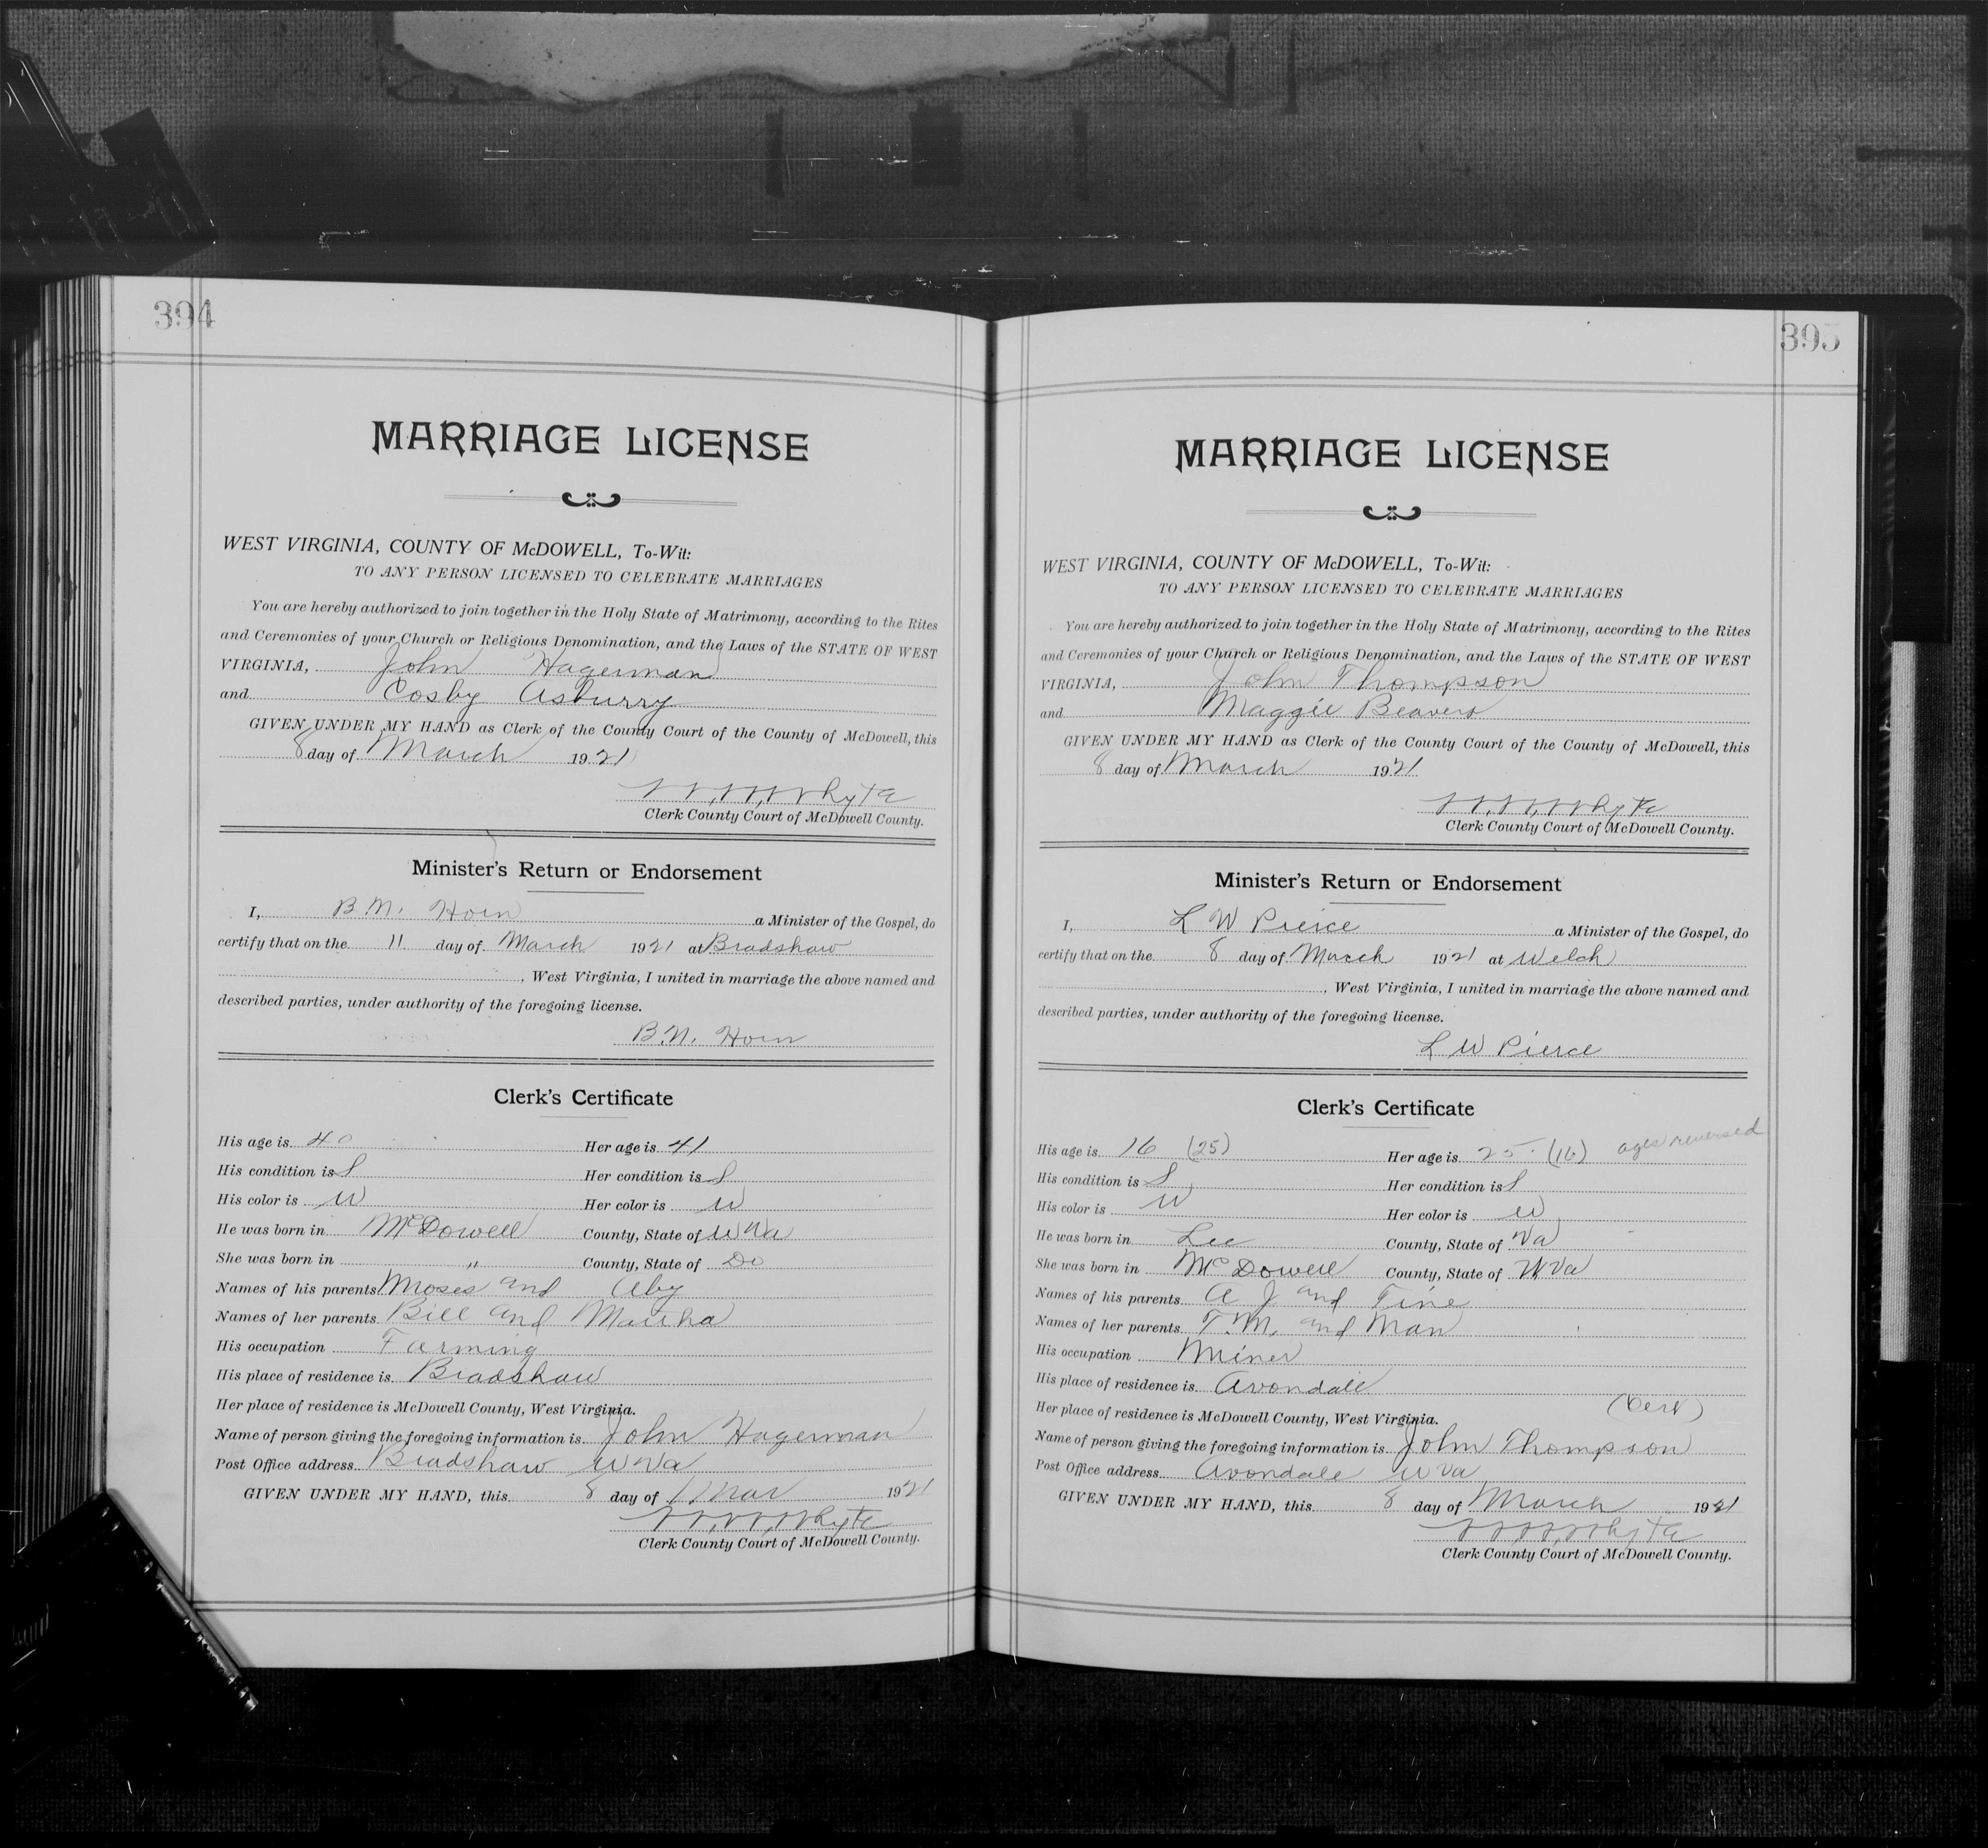 394
MARRIAGE LICENSE
WEST VIRGINIA, COUNTY OF McDOWELL, To-Wit:
TO ANY PERSON LICENSED TO CELEBRATE MARRIAGES
You are hereby authorized to join together in the Holy State of Matrimony, according to the Rites
and Ceremonies of your Church or Religious Denomination, and the Laws of the STATE OF WEST
VIRGINIA, John Hagerman
and Cosby Asburry
GIVEN UNDER MY HAND as Clerk of the County Court of the County of McDowell, this
8 day of March 1921
W.W. Whyte
Clerk County Court of McDowell County.
Minister's Return or Endorsement
I, B.N. Horn a Minister of the Gospel, do
certify that on the 11 day of March 1921 at Bradshaw
, West Virginia, I united in marriage the above named and
described parties, under authority of the foregoing license.
B.N. Horn
Clerk's Certificate
His age is 40 Her age is 41
His condition is S Her condition is S
His color is W Her color is W
He was born in McDowell County, State of W Va
She was born in " County, State of Do
Names of his parents Moses and Aby
Names of her parents Bill and Martha
His occupation Farming
His place of residence is Bradshaw
Her place of residence is McDowell County, West Virginia.
Name of person giving the foregoing information is John Hagerman
Post Office address Bradshaw W Va
GIVEN UNDER MY HAND, this 8 day of Mar 1921
W.W. Whyte
Clerk County Court of McDowell County.
395
MARRIAGE LICENSE
WEST VIRGINIA, COUNTY OF McDOWELL, To-Wit:
TO ANY PERSON LICENSED TO CELEBRATE MARRIAGES
You are hereby authorized to join together in the Holy State of Matrimony, according to the Rites
and Ceremonies of your Church or Religious Denomination, and the Laws of the STATE OF WEST
VIRGINIA, John Thompson
and Maggie Beavers
GIVEN UNDER MY HAND as Clerk of the County Court of the County of McDowell, this
8 day of March 1921
W.W. Whyte
Clerk County Court of McDowell County.
Minister's Return or Endorsement
I, L W Pierce a Minister of the Gospel, do
certify that on the 8 day of March 1921 at Welch
, West Virginia, I united in marriage the above named and
described parties, under authority of the foregoing license.
L W Pierce
Clerk's Certificate
His age is 16 (25) Her age is 25 (16) ages reversed
His condition is S Her condition is S
His color is W Her color is W
He was born in Lee County, State of Va
She was born in McDowell County, State of W Va
Names of his parents A J and Tine
Names of her parents T.M. and Man
His occupation Miner
His place of residence is Avondale
Her place of residence is McDowell County, West Virginia.
Name of person giving the foregoing information is John Thompson
Post Office address Avondale W Va
GIVEN UNDER MY HAND, this 8 day of March 1921
W.W. Whyte
Clerk County Court of McDowell County.